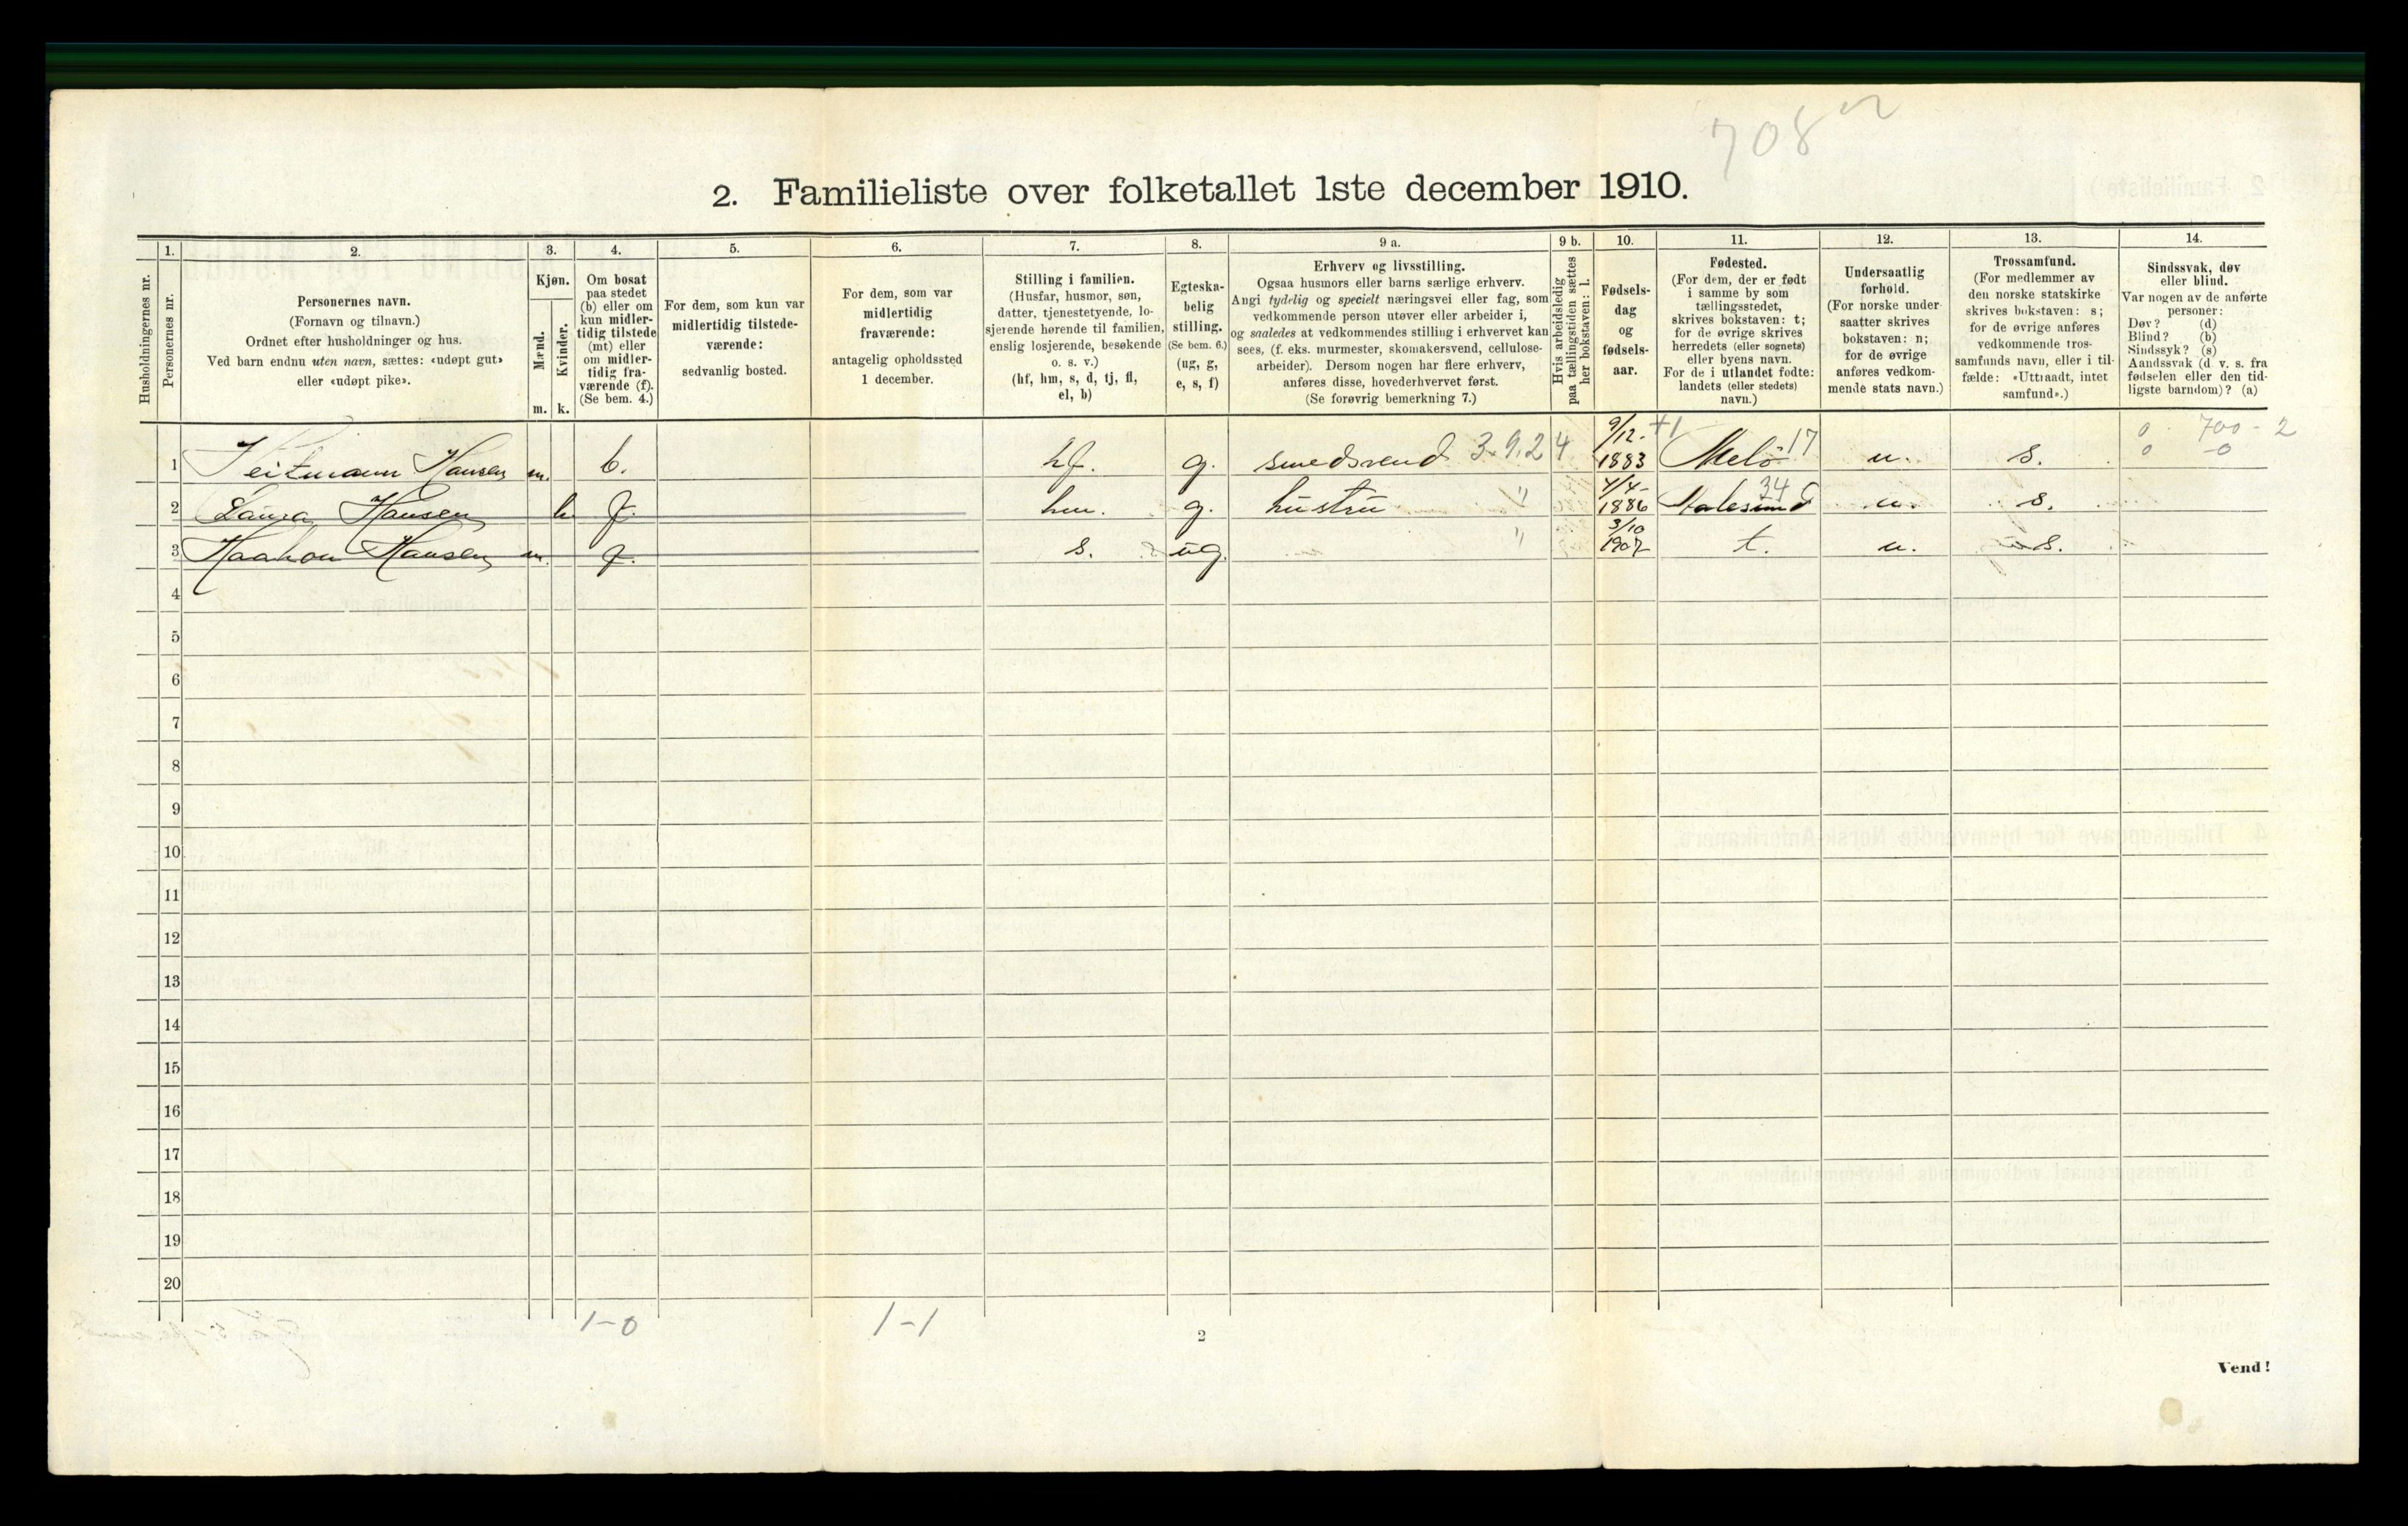 708 n
2. Familieliste over folketallet 1ste december 1910.
Husholdningernes nr.
1.
Personernes nr.
2.
Personernes navn.
(Fornavn og tilnavn.)
Ordnet efter husholdninger og hus.
Ved barn endnu uten navn, sættes: «udøpt gut»
eller «udøpt pike».
3.
Kjøn.
Mænd.
m.
Kvinder.
k.
4.
Om bosat
paa stedet
(b) eller om
kun midler-
tidig tilstede
(mt) eller
om midler-
tidig fra-
værende (f).
(Se bem. 4.)
5.
For dem, som kun var
midlertidig tilstede-
værende:
sedvanlig bosted.
6.
For dem, som var
midlertidig
fraværende:
antagelig opholdssted
1 december.
7.
Stilling i familien.
(Husfar, husmor, søn,
datter, tjenestetyende, lo-
sjerende hørende til familien,
enslig losjerende, besøkende
o. s. v.)
(hf, hm, s, d, tj, fl,
el, b)
8.
Egteska-
belig
stilling.
(Se bem. 6.)
(ug, g,
e, s, f)
9 a.
Erhverv og livsstilling.
Ogsaa husmors eller barns særlige erhverv.
Angi tydelig og specielt næringsvei eller fag, som
vedkommende person utøver eller arbeider i,
og saaledes at vedkommendes stilling i erhvervet kan
sees, (f. eks. murmester, skomakersvend, cellulose-
arbeider). Dersom nogen har flere erhverv,
anføres disse, hovederhvervet først.
(Se forøvrig bemerkning 7.)
9 b.
Hvis arbeidsledig
paa tællingstiden sættes
her bokstaven: l.
10.
Fødsels-
dag
og
fødsels-
aar.
11.
Fødested.
(For dem, der er født
i samme by som
tællingsstedet,
skrives bokstaven: t;
for de øvrige skrives
herredets (eller sognets)
eller byens navn.
For de i utlandet fødte:
landets (eller stedets)
navn.)
12.
Undersaatlig
forhold.
(For norske under-
saatter skrives
bokstaven: n;
for de øvrige
anføres vedkom-
mende stats navn.)
13.
Trossamfund.
(For medlemmer av
den norske statskirke
skrives bokstaven: s;
for de øvrige anføres
vedkommende tros-
samfunds navn, eller i til-
fælde: «Uttraadt, intet
samfund».)
14.
Sindssvak, døv
eller blind.
Var nogen av de anførte
personer:
Døv? (d)
Blind? (b)
Sindssyk? (s)
Aandssvak (d. v. s. fra
fødselen eller den tid-
ligste barndom)? (a)
1 Hansen m. b. hf. g. smedsvend 3.9.24 9/12- 1883 +1 Melø 17 n. s. 0 700-2 0 -0
2 Laura Hansen k f. hm. g. hustru " 4/4- 1886 34 Aalesund n. s.
3 Haakon Hansen m. f. s. ug. " 3/10 1907 t. n. s.
4
5
6
7
8
9
10
11
12
13
14
15
16
17
18
19
20
1-0 1-1
2
Vend!